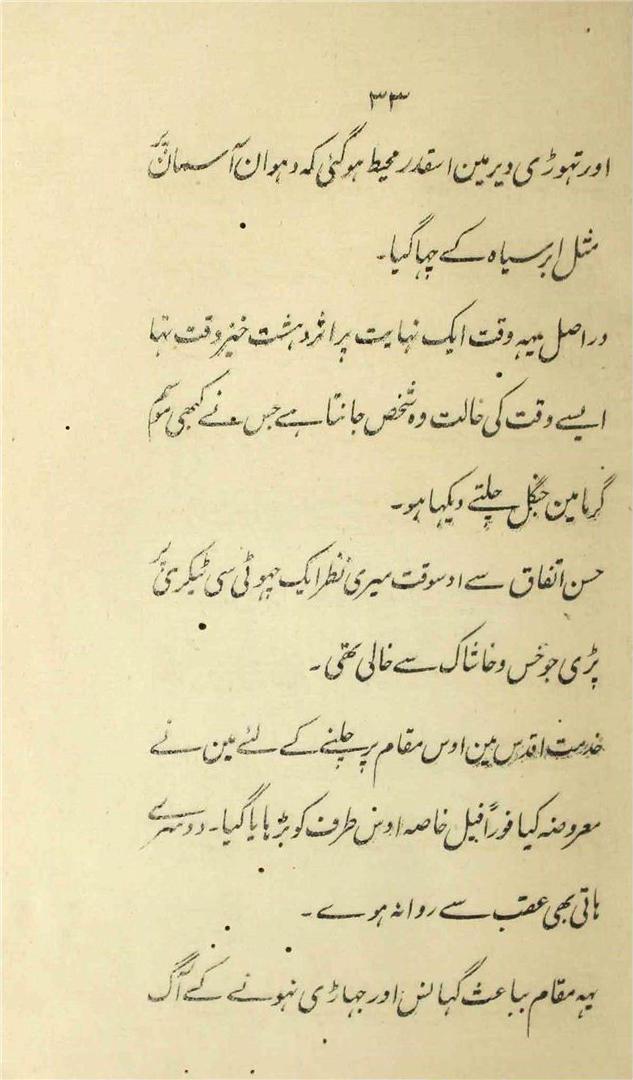 ۳۳
اور تہوڑی دیر مین اسقدر محیط ہوگئی کہ دہوان آسمان پر
مثل ابر سیاہ کے چہا گیا۔
دراصل یہہ وقت ایک نہایت پر اثر دہشت خیز وقت تہا
ایسے وقت کی حالت وہ شخص جانتا ہے جس نے کبھی موسم
گرما مین جنگل جلتے دیکہا ہو۔
حسن اتفاق سے اوسوقت میری نظر ایک چہوٹی سی ٹیکری پر
پڑی جو خس و خاشاک سے خالی تھی۔
خدمت اقدس مین اوس مقام پر چلنے کے لئے مین نے
معروضہ کیا فوراً فیل خاصہ اوس طرف کو بڑہایا گیا۔ دوسرے
ہاتی بھی عقب سے روانہ ہوے۔
یہہ مقام بباعث گہانس اور جہاڑی نہونے کے آگ